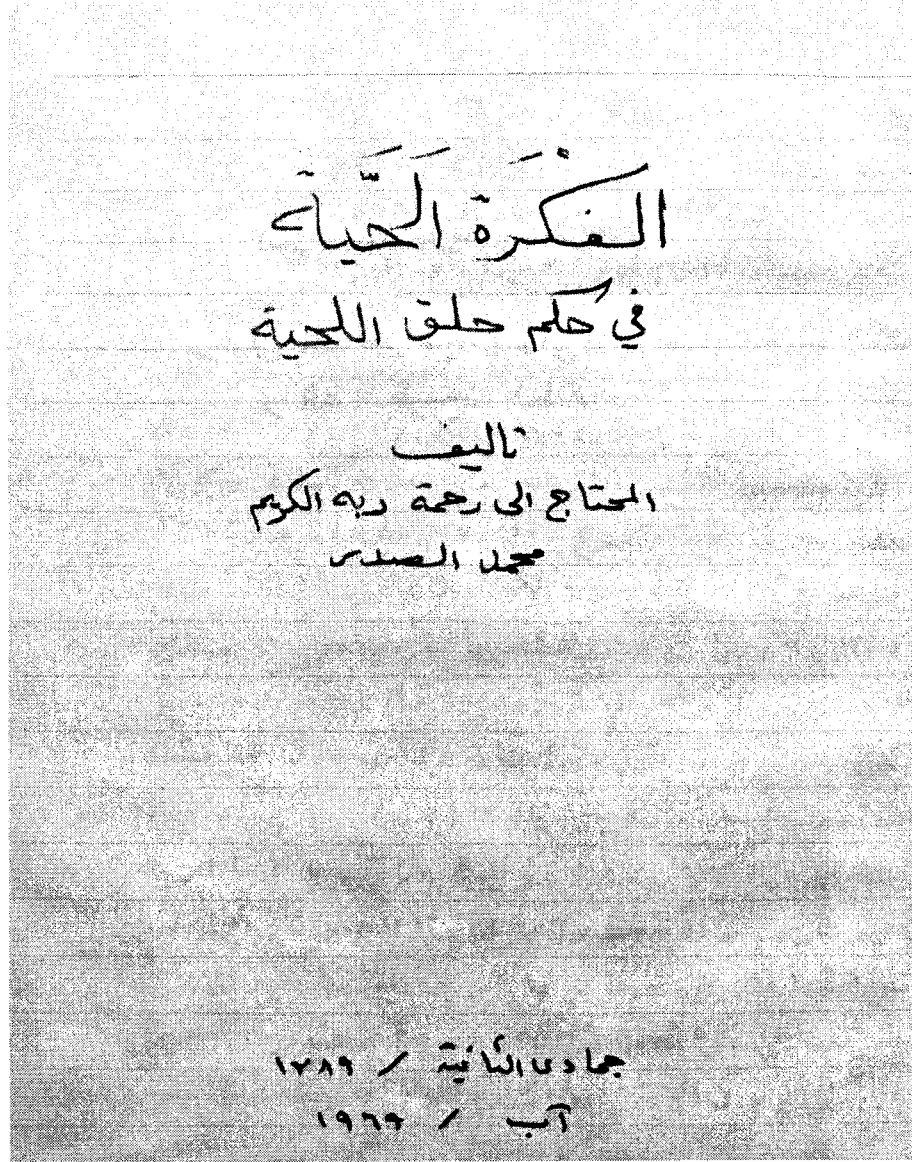 الفكْرَة الَحَيَّاة
في حكم حلق اللحية
تأليف
المحتاج الى رحمة ربه الكريم
محمد الصدر
جمادى الثانية / ١٣٨٩
آب / ١٩٦٩